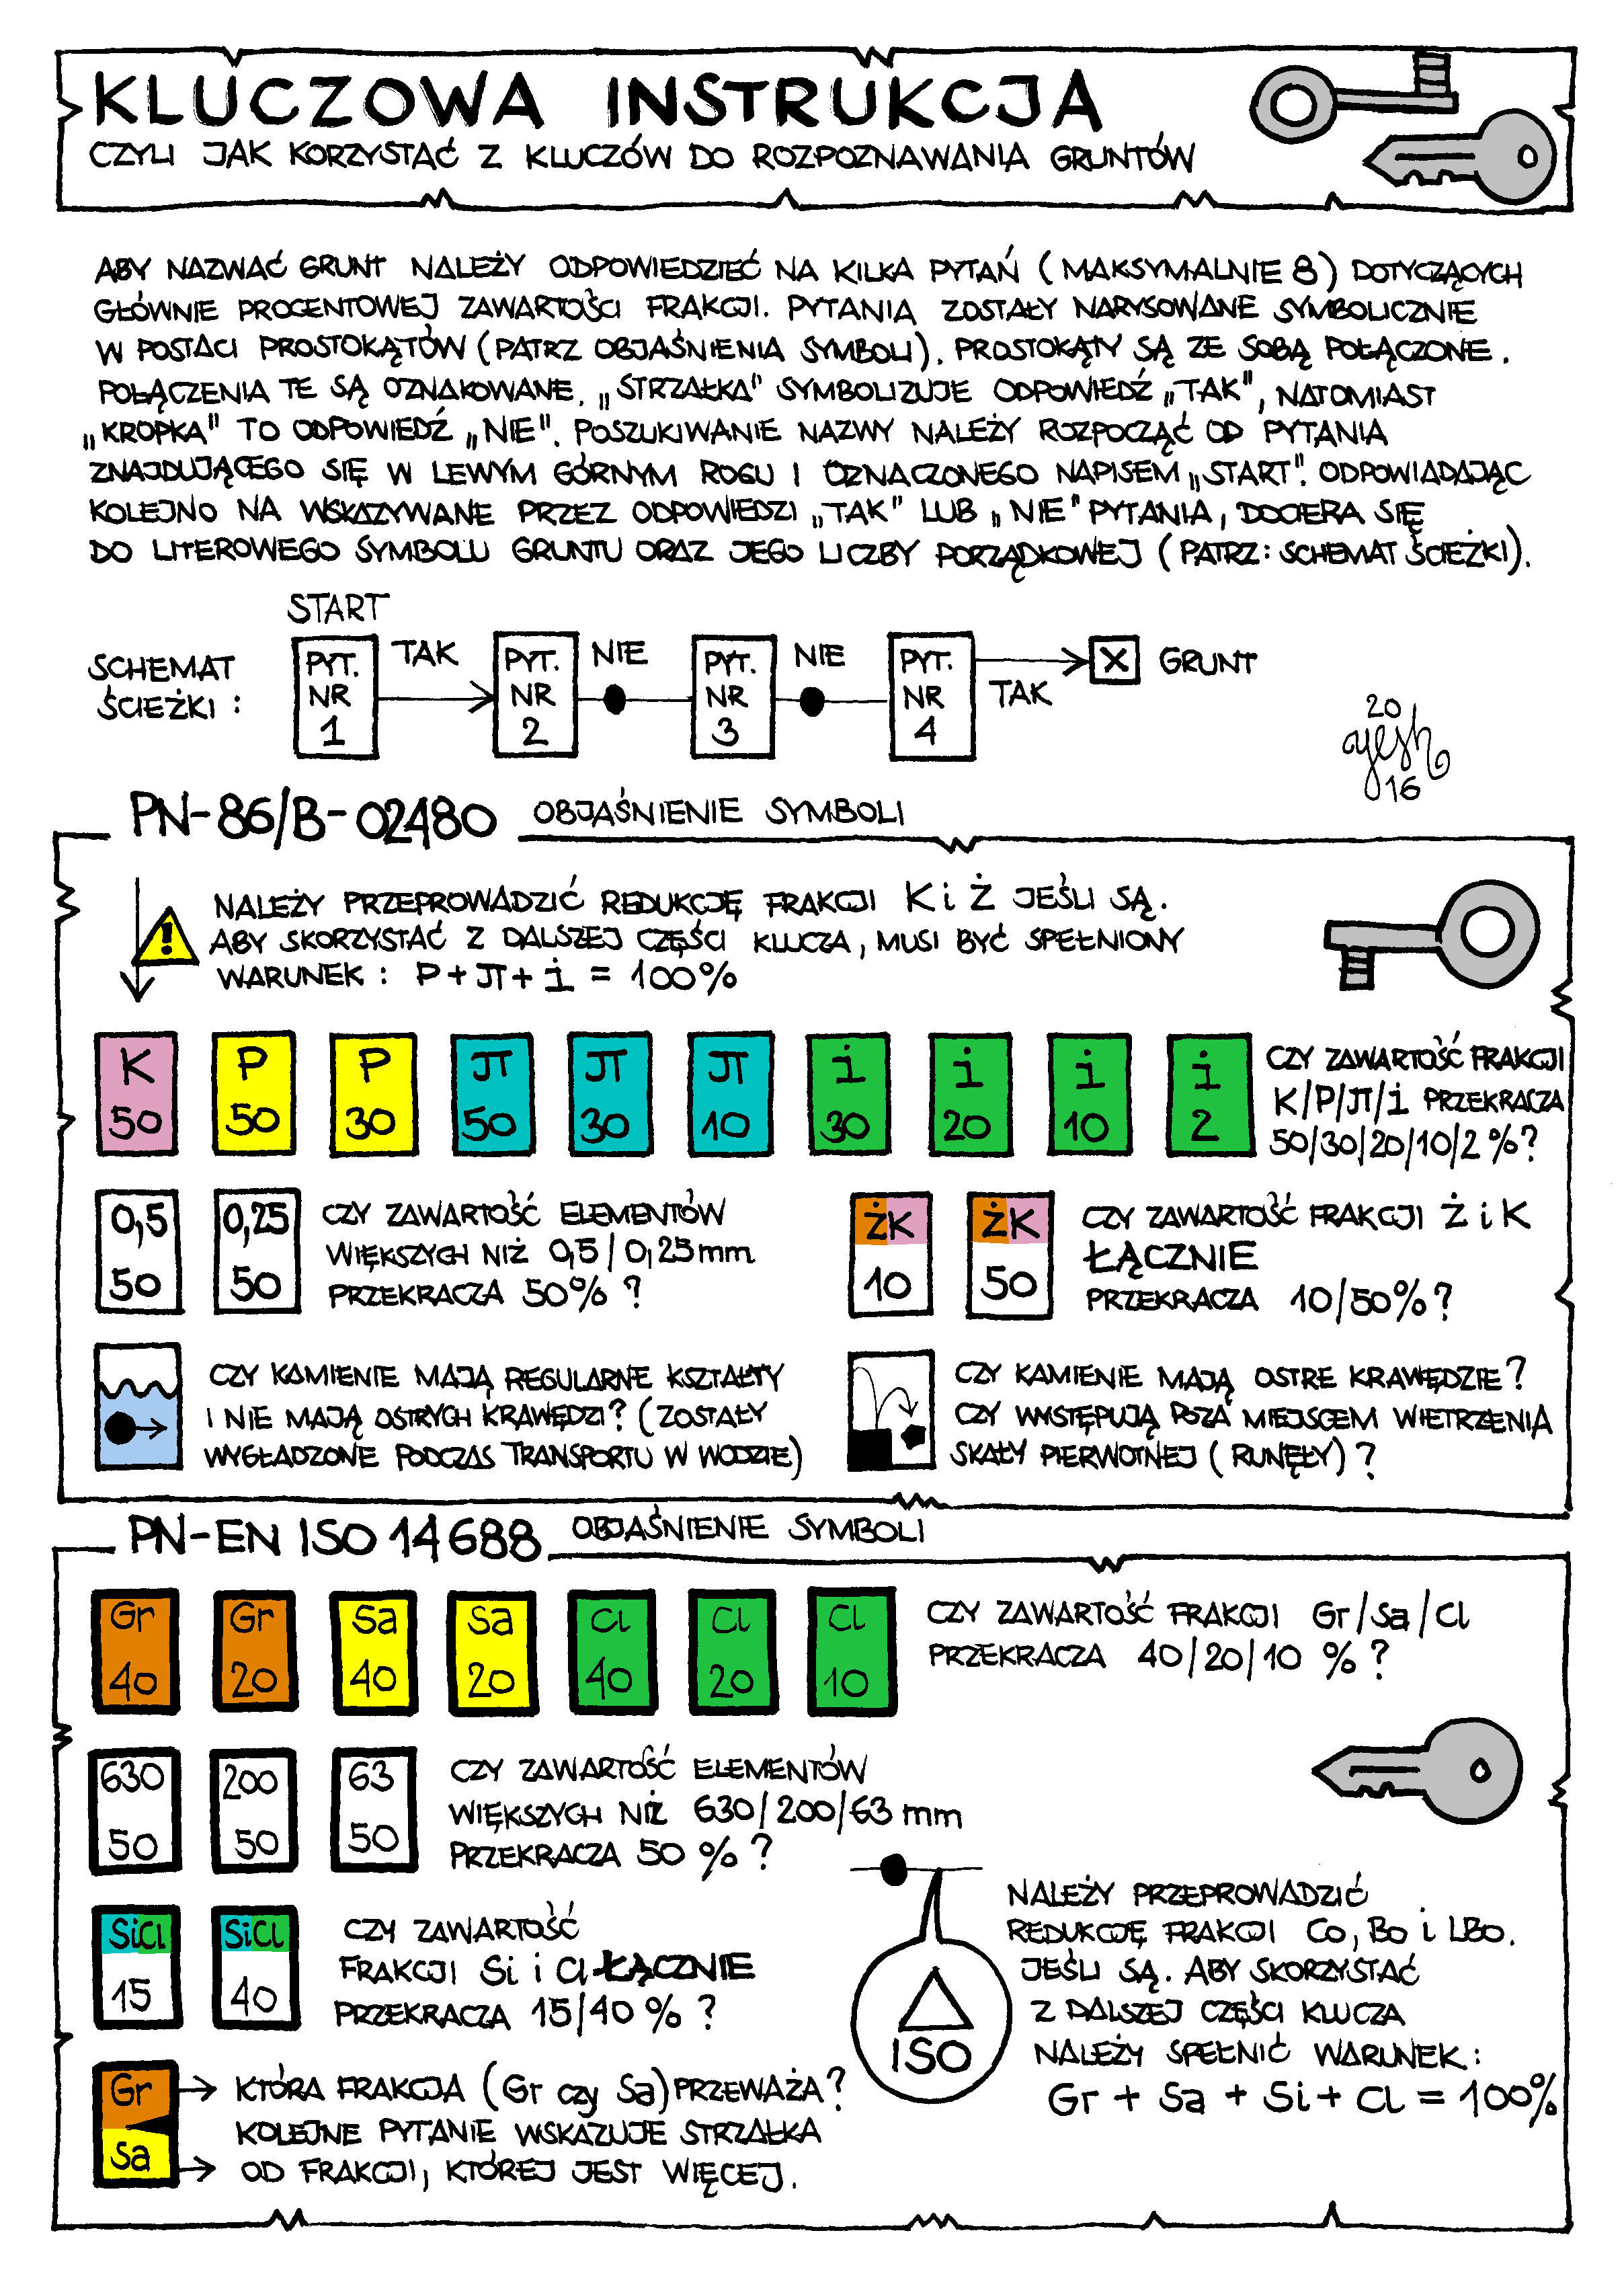 KLUCZOWA INSTRUKCJA
CZYLI JAK KORZYSTAĆ Z KLUCZÓW DO ROZPOZNAWANIA GRUNTÓW
ABY NAZWAĆ GRUNT NALEŻY ODPOWIEDZIEĆ NA KILKA PYTAŃ (MAKSYMALNIE 8) DOTYCZĄCYCH
GŁÓWNIE PROCENTOWEJ ZAWARTOŚCI FRAKCJI. PYTANIA ZOSTAŁY NARYSOWANE SYMBOLICZNIE
W POSTACI PROSTOKĄTÓW (PATRZ OBJAŚNIENIA SYMBOLI). PROSTOKĄTY SĄ ZE SOBĄ POŁĄCZONE.
POŁĄCZENIA TE SĄ OZNAKOWANE. „STRZAŁKA" SYMBOLIZUJE ODPOWIEDŹ „TAK", NATOMIAST
„KROPKA" TO ODPOWIEDŹ „NIE". POSZUKIWANIE NAZWY NALEŻY ROZPOCZĄĆ OD PYTANIA
ZNAJDUJĄCEGO SIĘ W LEWYM GÓRNYM ROGU I OZNACZONEGO NAPISEM „START". ODPOWIADAJĄC
KOLEJNO NA WSKAZYWANE PRZEZ ODPOWIEDZI „TAK" LUB „NIE" PYTANIA, DOCIERA SIĘ
DO LITEROWEGO SYMBOLU GRUNTU ORAZ JEGO LICZBY PORZĄDKOWEJ (PATRZ: SCHEMAT ŚCIEŻKI).
START
SCHEMAT ŚCIEŻKI:
PYT. NR 1
TAK
PYT. NR 2
NIE
PYT. NR 3
NIE
PYT. NR 4
TAK
X
GRUNT
20
yesh
16
PN-86/B-02480 OBJAŚNIENIE SYMBOLI
!
NALEŻY PRZEPROWADZIĆ REDUKCJĘ FRAKCJI K i Ż JEŚLI SĄ.
ABY SKORZYSTAĆ Z DALSZEJ CZĘŚCI KLUCZA, MUSI BYĆ SPEŁNIONY
WARUNEK: P + π + i = 100%
K P P π π π i i i i
50 50 30 50 30 10 30 20 10 2
CZY ZAWARTOŚĆ FRAKCJI
K/P/π/i PRZEKRACZA
50/30/20/10/2 %?
0,5 0,25
50 50
CZY ZAWARTOŚĆ ELEMENTÓW
WIĘKSZYCH NIŻ 0,5/0,25mm
PRZEKRACZA 50% ?
ŻK ŻK
10 50
CZY ZAWARTOŚĆ FRAKCJI Ż i K
ŁĄCZNIE
PRZEKRACZA 10/50% ?
CZY KAMIENIE MAJĄ REGULARNE KSZTAŁTY
I NIE MAJĄ OSTRYCH KRAWĘDZI? (ZOSTAŁY
WYGŁADZONE PODCZAS TRANSPORTU W WODZIE)
CZY KAMIENIE MAJĄ OSTRE KRAWĘDZIE?
CZY WYSTĘPUJĄ POZA MIEJSCEM WIETRZENIA
SKAŁY PIERWOTNEJ (RUNĘŁY)?
PN-EN ISO 14688 OBJAŚNIENIE SYMBOLI
Gr Gr Sa Sa Cl Cl Cl
40 20 40 20 40 20 10
CZY ZAWARTOŚĆ FRAKCJI Gr/Sa/Cl
PRZEKRACZA 40/20/10 % ?
630 200 63
50 50 50
CZY ZAWARTOŚĆ ELEMENTÓW
WIĘKSZYCH NIŻ 630/200/63 mm
PRZEKRACZA 50 % ?
SiCl SiCl
15 40
CZY ZAWARTOŚĆ
FRAKCJI Si i Cl ŁĄCZNIE
PRZEKRACZA 15/40 % ?
ISO
NALEŻY PRZEPROWADZIĆ
REDUKCJĘ FRAKCJI Co, Bo i LBo.
JEŚLI SĄ. ABY SKORZYSTAĆ
Z DALSZEJ CZĘŚCI KLUCZA
NALEŻY SPEŁNIĆ WARUNEK:
Gr + Sa + Si + Cl = 100%
Gr
Sa
KTÓRA FRAKCJA (Gr czy Sa) PRZEWAŻA?
KOLEJNE PYTANIE WSKAZUJE STRZAŁKA
OD FRAKCJI, KTÓREJ JEST WIĘCEJ.